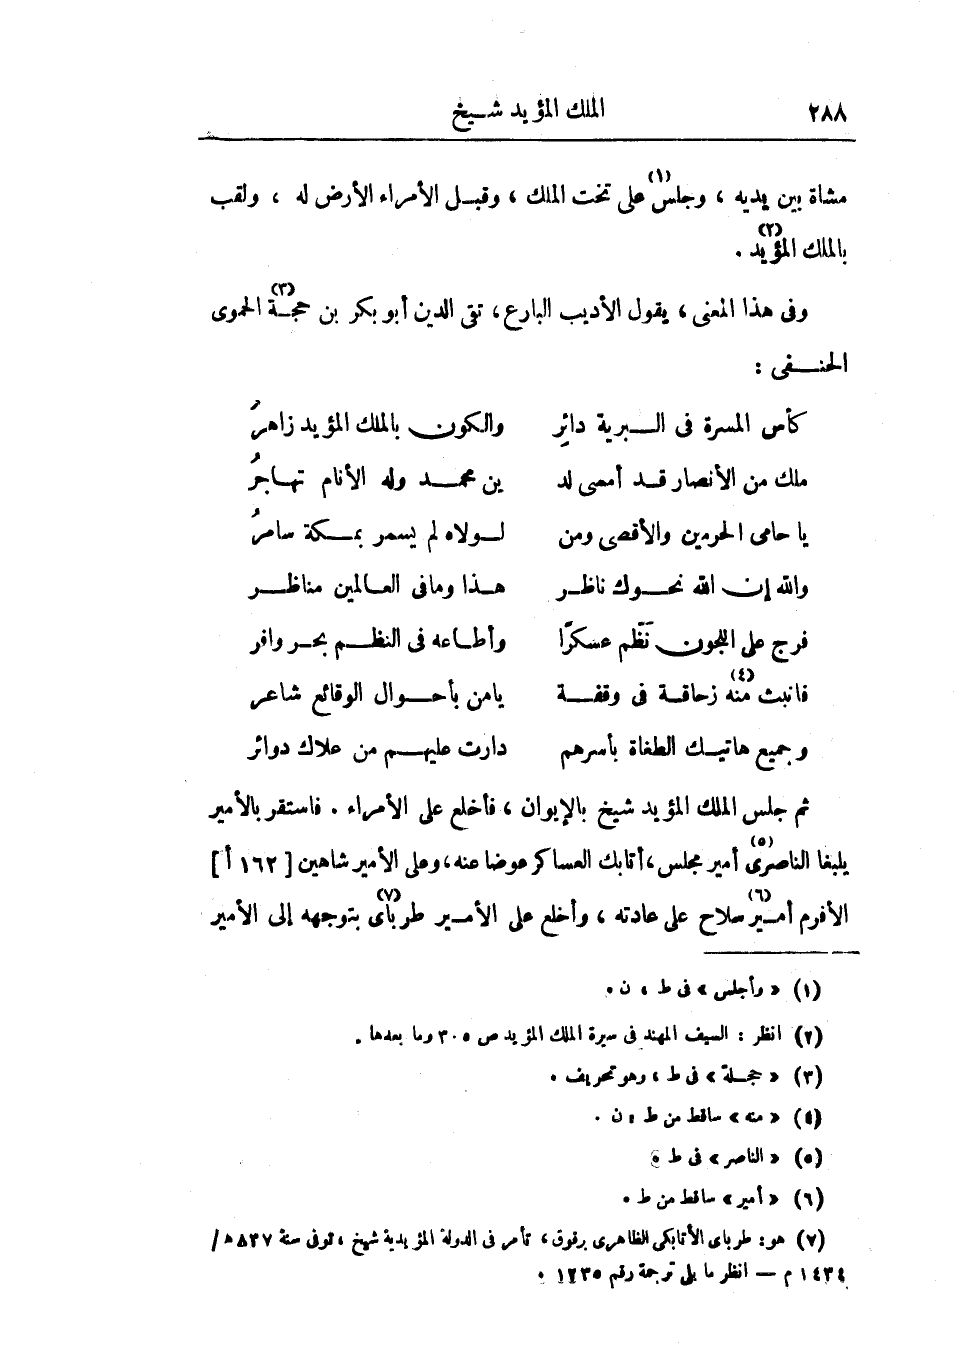 ٢٨٨ الملك المؤيد شيخ
مشاة بين يديه ، وجلس(١) على تخت الملك ، وقبل الأمراء الأرض له ، ولقب
بالملك المؤيد(٢) .
وفى هذا المعنى ، يقول الأديب البارع ، تقى الدين أبو بكر بن حجة(٣) الحموى
الحنفى :
كأس المسرة فى البرية دائر والكون بالملك المؤيد زاهرُ
ملك من الأنصار قد أمسى لد ين محمد وله الأنام تهاجرُ
يا حامى الحرمين والأقصى ومن لولاه لم يسمر بمكة سامرُ
والله إن الله نحوك ناظر هذا وما فى العالمين مناظر
فرج على اللجون نَظّم عسكرًا وأطاعه فى النظم بحر وافر
فانبث منه(٤) زحاقة فى وقفة يا من بأحوال الوقائع شاعر
وجميع هاتيك الطغاة بأسرهم دارت عليهم من علاك دوائر
ثم جلس الملك المؤيد شيخ بالإيوان ، فأخلع على الأمراء . فاستقر بالأمير
يلبغا الناصرى(٥) أمير مجلس ، أتابك العساكر عوضا عنه ، وعلى الأمير شاهين [ ١٦٢ أ ]
الأفرم أمير(٦) سلاح على عادته ، وأخلع على الأمير طرباى(٧) بتوجهه إلى الأمير
(١) « وأجلس » فى ط ، ن .
(٢) انظر : السيف المهند فى سيرة الملك المؤيد ص ٣٠٥ وما بعدها .
(٣) « حجلة » فى ط ، وهو تحريف .
(٤) « منه » ساقط من ط ، ن .
(٥) « الناصر » فى ط .
(٦) « أمير » ساقط من ط .
(٧) هو: طرباى الأتابكى الظاهرى برقوق ، تأمر فى الدولة المؤيدية شيخ ، توفى سنة ٨٣٧ هـ /
١٤٣٤ م — انظر ما يلى ترجمة رقم ١٢٣٥ .